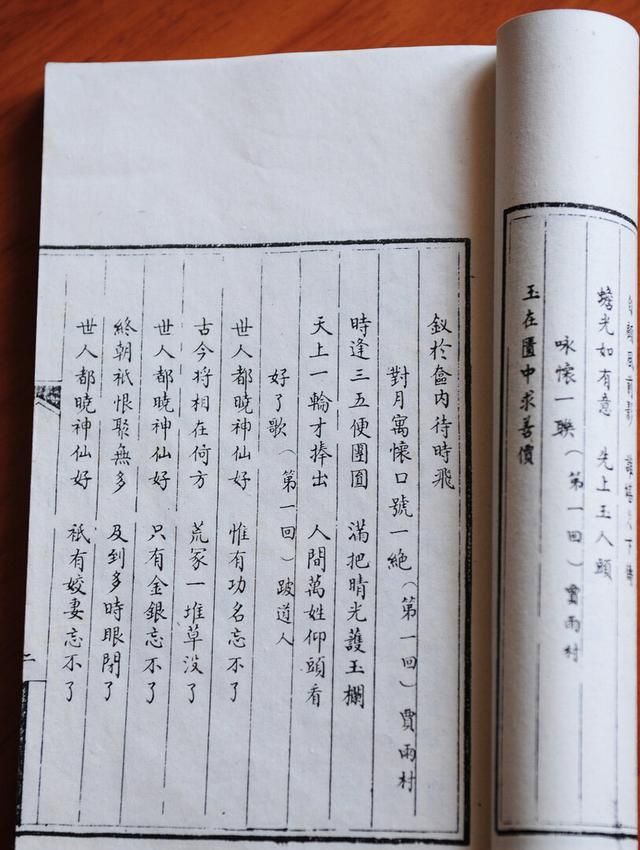 蟾光如有意　先上玉人頭
咏懷一聯（第一回）賈雨村
玉在匱中求善價
釵於奩内待時飛
對月寓懷口號一絕（第一回）賈雨村
時逢三五便團圓　滿把晴光護玉欄
天上一輪才捧出　人間萬姓仰頭看
好了歌（第一回）跛道人
世人都曉神仙好　惟有功名忘不了
古今将相在何方　荒冢一堆草没了
世人都曉神仙好　只有金銀忘不了
終朝衹恨聚無多　及到多時眼閉了
世人都曉神仙好　衹有姣妻忘不了
二